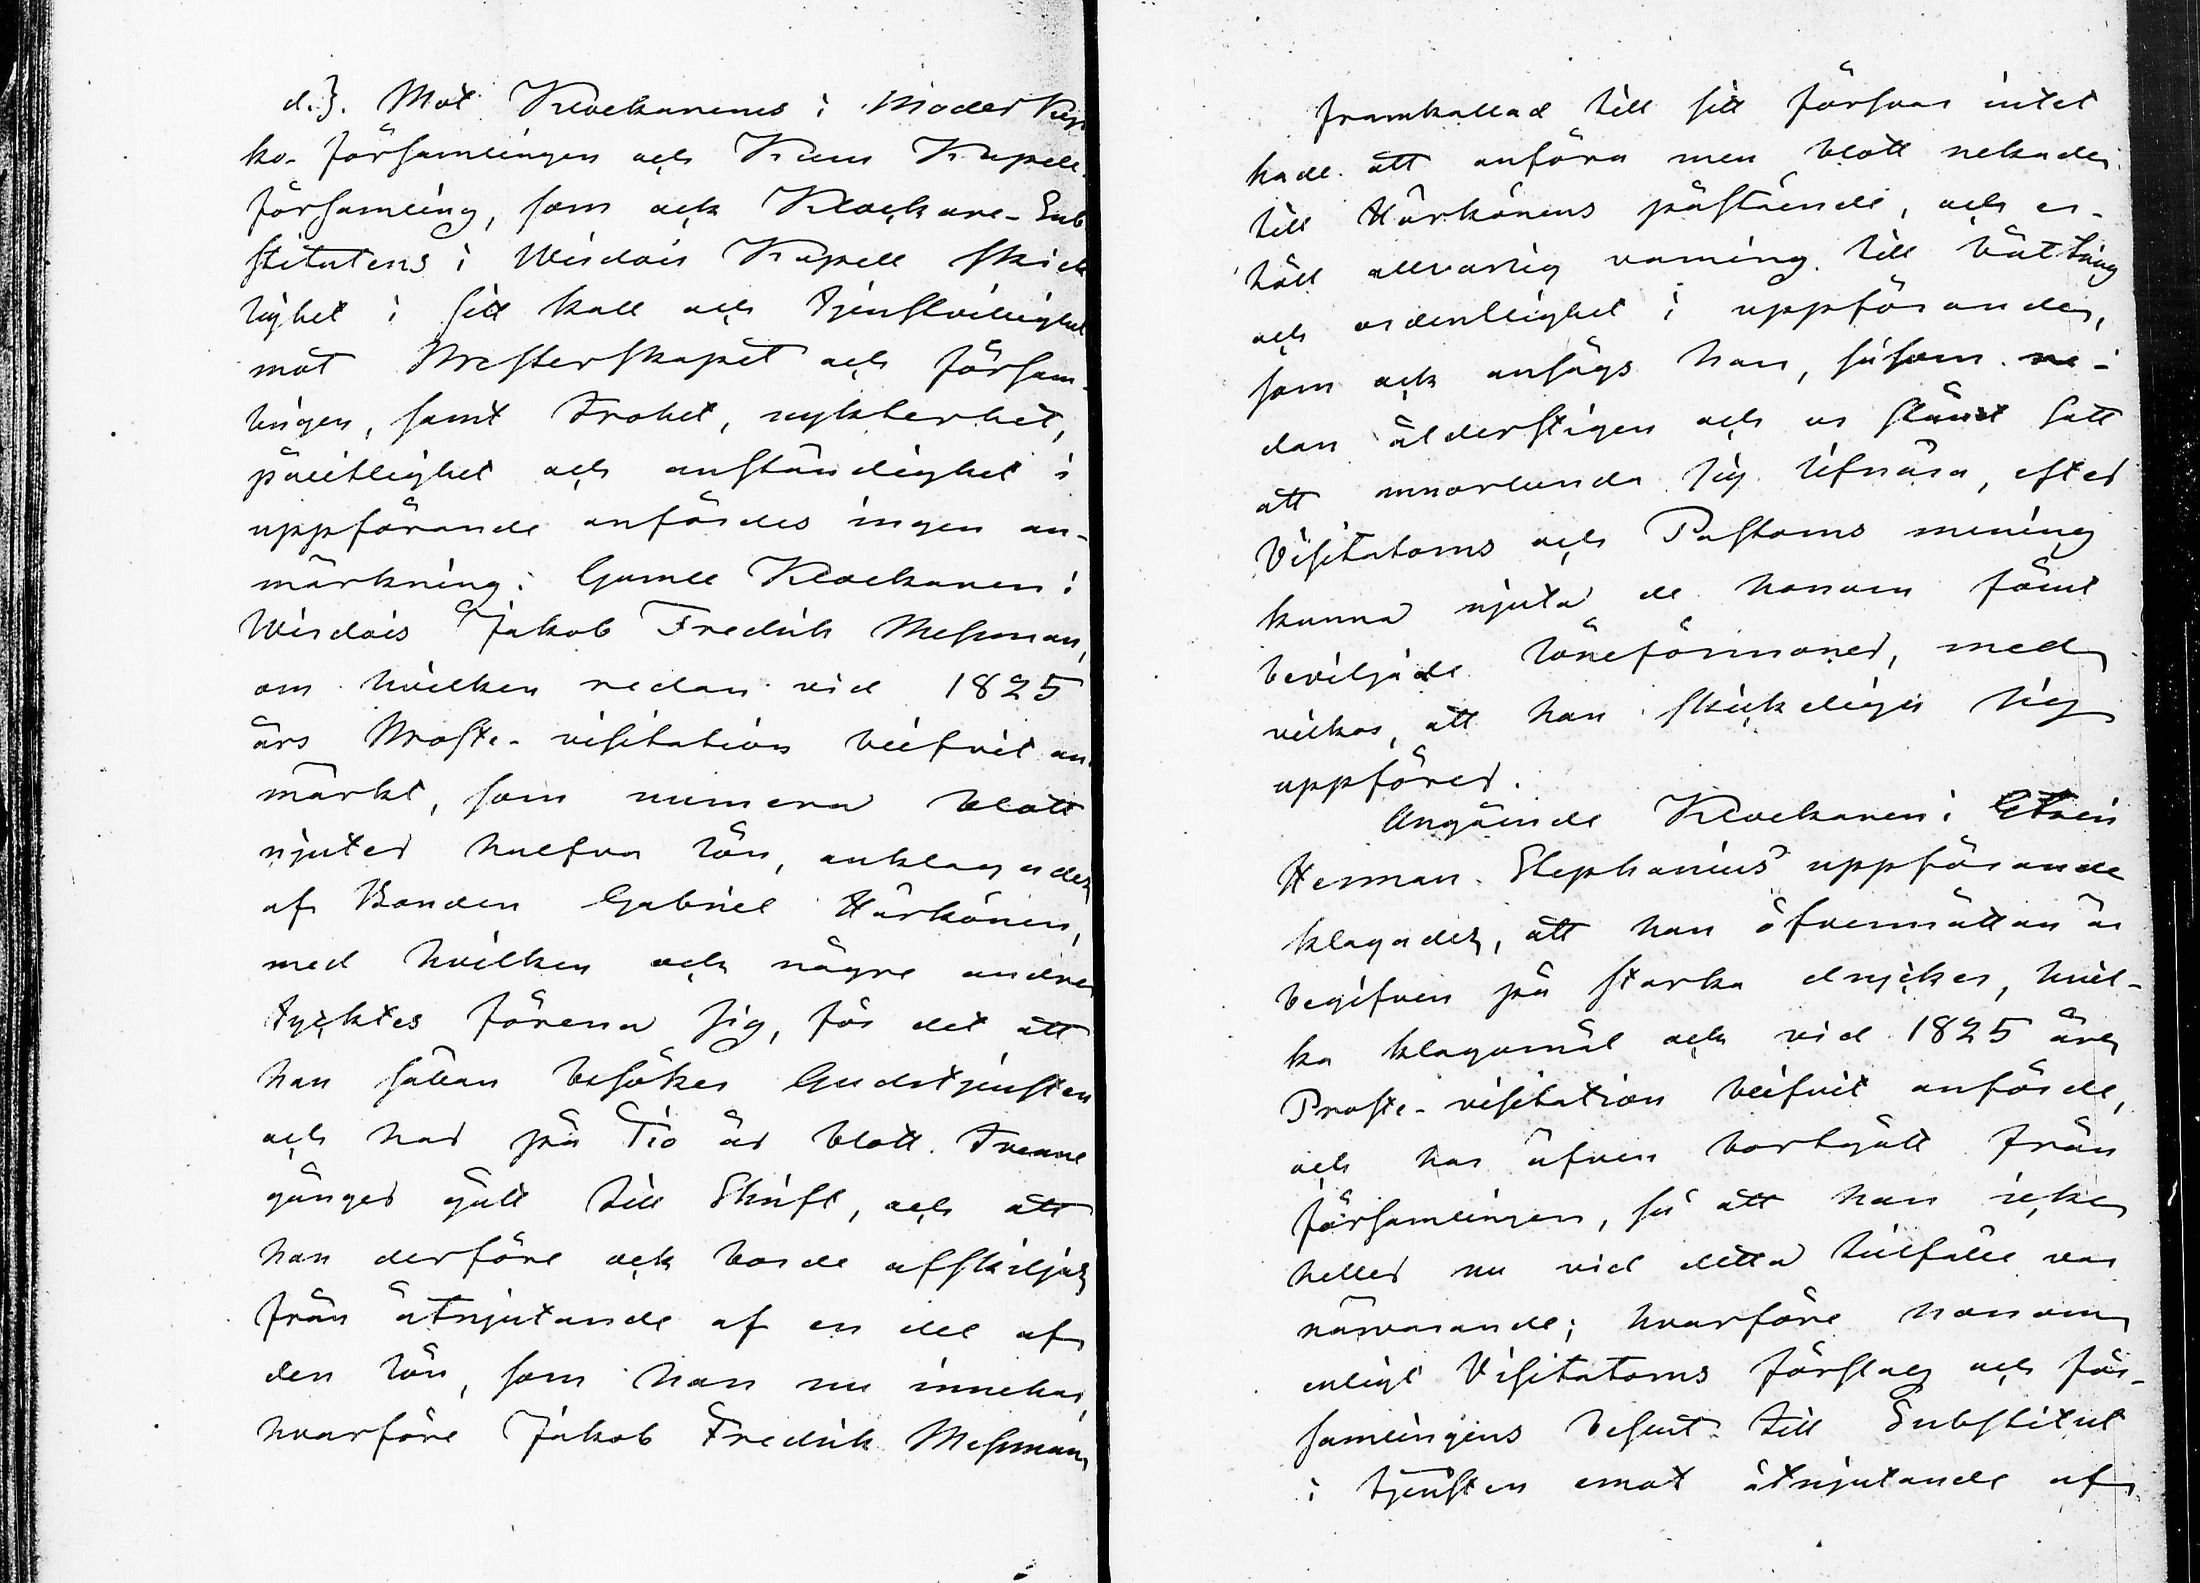 d.). Mot Klockarenes i Moder Kyr
ko-församlingen och Kuru Kapell
församling, som ock Klockare-Sub
stitutens i Wirdois Kapell skick
lighet i sitt kall och tjenstvillighet
mot Presterskapet och försam-
lingen, samt trohet, nykterhet,
pålitlighet och anständighet i
uppförande anfördes ingen an-
märkning: Gamle Klockaren i
Wirdois Jakob Fredrik Messman,
om hvilken redan vid 1825
års Prosts-visitation blifvit an
märkt, som numera blott
njuter halfva lön, anklagades
af Bonden Gabriel Härkönen,
med hvilken och någre andre
tycktes förena sig, för det att
han sällan besöker Gudstjensten
och har på Tio år blott tvenne
gånger gått till Skrift, och att
han derföre ock borde afskiljas
från åtnjutande af en del af
den lön, som han nu innehar,
hvarföre Jakob Fredrik Messman
framkallad till sitt försvar intet
hade att anföra men blott nekade
till Härkönens påstående, och er-
höll allvarlig varning till bättring
och ordentlighet i uppförandes,
som ock ansågs han, såsom re-
dan ålderstigen och ur stånd satt
att annorlunda sig lifnära, efter
Visitatorns och Pastorns mening
kunna njuta de honom förut
beviljade löneförmoner, med
vilkor, att han skickeligen sig
uppförer.
Angående Klockaren i Etseri
Herman Stephanius' uppförande
klagades, att han öfvermåttan är
begifven på starka drycker, hvil-
ka klagomål och vid 1825 års
Prosts-visitation blifvit anförde,
och har äfven bortgått från
församlingen, så att han icke
heller nu vid detta tillfälle var
närvarande; hvarföre honom
enligt Visitatorns förslag och för-
samlingens beslut till Substitut
i tjensten emot åtnjutande af